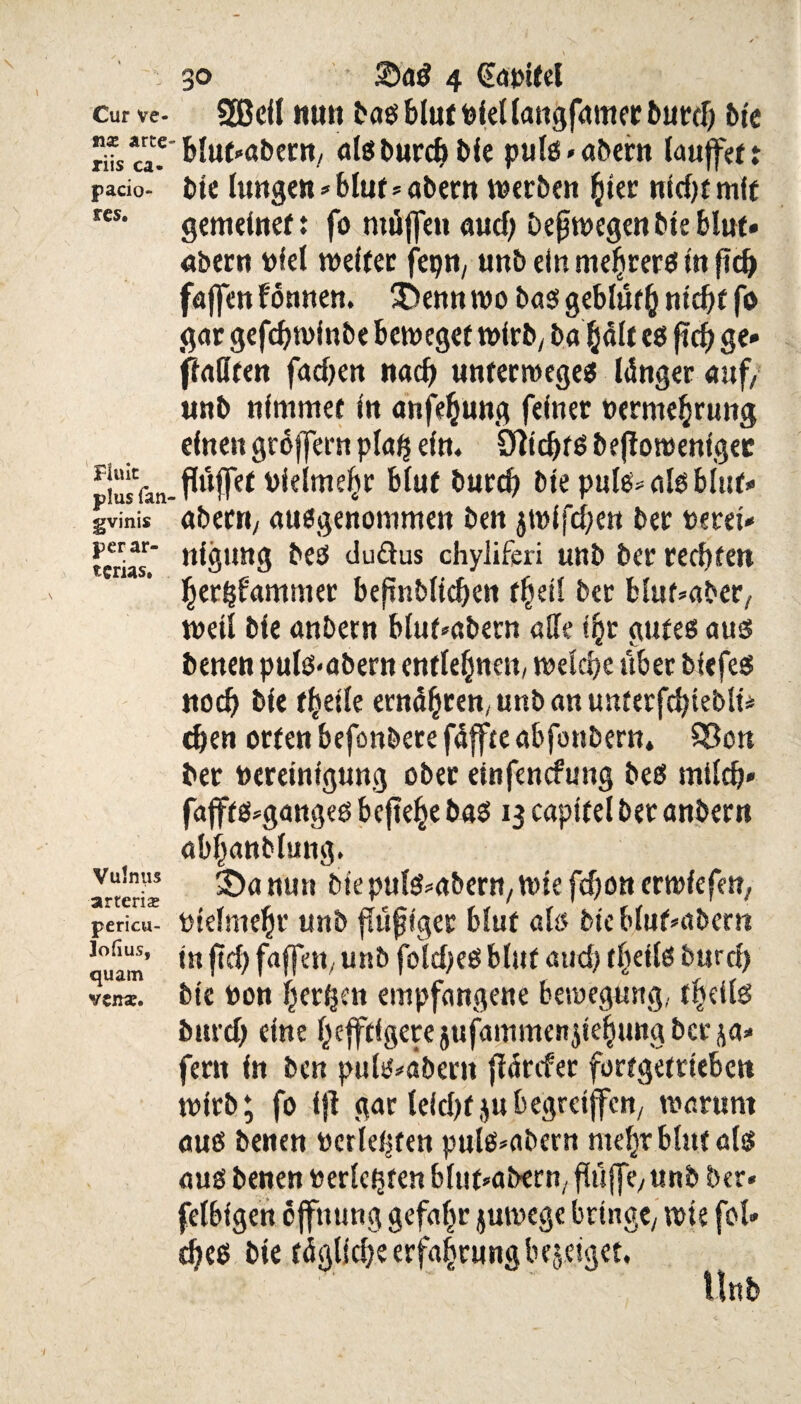 30 Das 4 Capitel
Cur ve-
næ arte-
riis ca-
pacio-
res.
Weil nun das blut viel langsamer durch die
blut-adern, als durch die puls-adern lauffet:
die lungen-blut-adern werden hier nicht mit
gemeinet: so müssen auch deßwegen die blut-
adern viel weiter seyn, und ein mehrers in sich
fassen können. Denn wo das geblüth nicht so
gar geschwinde beweget wird, da hält es sich ge-
stallten sachen nach unterweges länger auf,
und nimmet in ansehung seiner vermehrung
einen grössern platz ein. Nichts destoweniger
Fluit
plus san-
gvinis
per ar-
terias.
flüsset vielmehr blut durch die puls- als blut-
adern, ausgenommen den zwischen der verei-
nigung des ductus chyliferi und der rechten
hertzkammer befindlichen theil der blut-ader,
weil die andern blut-adern alle ihr gutes aus
denen puls-adern entlehnen, welche über dieses
noch die theile ernähren, und an unterschiedli-
chen orten besondere säffte absondern. Von
der vereinigung oder einsenckung des milch-
saffts-ganges besiehe das 13 capitel der andern
abhandlung.
Vulnus
arteriæ
pericu-
losius,
quam
venæ.
Da nun die puls-adern, wie schon erwiesen,
vielmehr und flüßiger blut als die blut-adern
in sich fassen, und solches blut auch theils durch
die von hertzen empfangene bewegung, theils
durch eine hefftigere zusammenziehung der za-
sern in den puls-adern stärcker fortgetrieben
wird; so ist gar leicht zu begreiffen, warum
aus denen verletzten puls-adern mehr blut als
aus denen verletzten blut-adern, flüsse, und der-
selbigen öffnung gefahr zuwege bringe, wie sol-
ches die tägliche erfahrung bezeiget.
Und